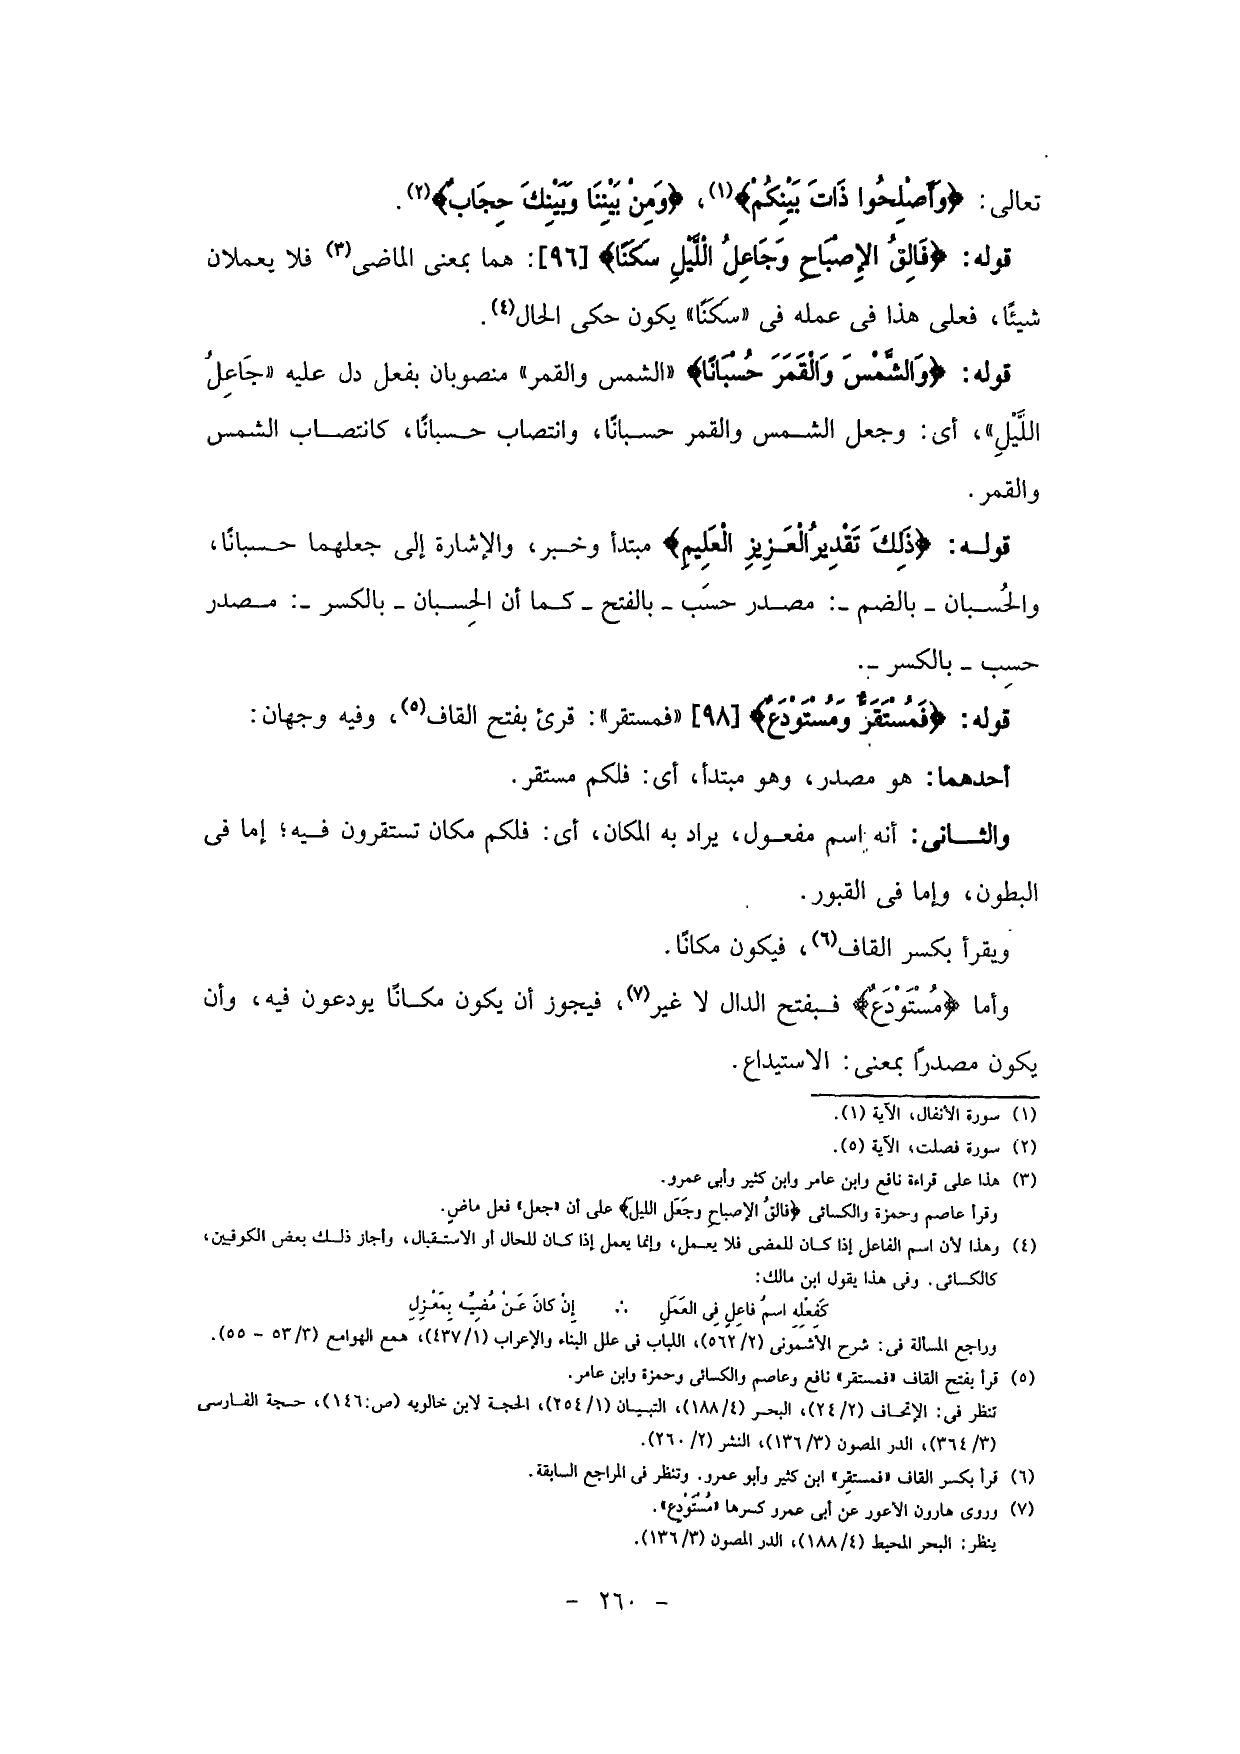 تعالى: ﴿وَأَصْلِحُوا ذَاتَ بَيْنِكُمْ﴾(١)، ﴿وَمِنْ بَيْنِنَا وَبَيْنِكَ حِجَابٌ﴾(٢).
قوله: ﴿فَالِقُ الإِصْبَاحِ وَجَاعِلُ الْلَّيْلِ سَكَنًا﴾ [٩٦]: هما بمعنى الماضى(٣) فلا يعملان
شيئًا، فعلى هذا فى عمله فى «سَكَنًا» يكون حكى الحال(٤).
قوله: ﴿وَالشَّمْسَ وَالْقَمَرَ حُسْبَانًا﴾ «الشمس والقمر» منصوبان بفعل دل عليه «جَاعِلُ
اللَّيْلِ»، أى: وجعل الشمس والقمر حسبانًا، وانتصاب حسبانًا، كانتصاب الشمس
والقمر.
قوله: ﴿ذَلِكَ تَقْدِيرُ الْعَزِيزِ الْعَلِيمِ﴾ مبتدأ وخبر، والإشارة إلى جعلهما حسبانًا،
والحُسبان ـ بالضم ـ: مصدر حسَب ـ بالفتح ـ كما أن الحِسبان ـ بالكسر ـ: مصدر
حسِب ـ بالكسر ـ.
قوله: ﴿فَمُسْتَقَرٌّ وَمُسْتَوْدَعٌ﴾ [٩٨] «فمستقر»: قرئ بفتح القاف(٥)، وفيه وجهان:
أحدهما: هو مصدر، وهو مبتدأ، أى: فلكم مستقر.
والثانى: أنه اسم مفعول، يراد به المكان، أى: فلكم مكان تستقرون فيه؛ إما فى
البطون، وإما فى القبور.
ويقرأ بكسر القاف(٦)، فيكون مكانًا.
وأما ﴿مُسْتَوْدَعٌ﴾ فبفتح الدال لا غير(٧)، فيجوز أن يكون مكانًا يودعون فيه، وأن
يكون مصدرًا بمعنى: الاستيداع.
(١) سورة الأنفال، الآية (١).
(٢) سورة فصلت، الآية (٥).
(٣) هذا على قراءة نافع وابن عامر وابن كثير وأبى عمرو.
وقرأ عاصم وحمزة والكسائى ﴿فالقُ الإصباحِ وجَعَلَ الليلَ﴾ على أن «جعل» فعل ماضٍ.
(٤) وهذا لأن اسم الفاعل إذا كان للمضى فلا يعمل، وإنما يعمل إذا كان للحال أو الاستقبال، وأجاز ذلك بعض الكوفيين،
كالكسائى. وفى هذا يقول ابن مالك:
كَفِعْلِهِ اسمُ فاعِلٍ فِى العَمَلِ ∴ إِنْ كانَ عَنْ مُضِيِّه بِمَعْزِلِ
وراجع المسألة فى: شرح الأشمونى (٢/٥٦٢)، اللباب فى علل البناء والإعراب (١/٤٣٧)، همع الهوامع (٣/٥٣ - ٥٥).
(٥) قرأ بفتح القاف «فمستقر» نافع وعاصم والكسائى وحمزة وابن عامر.
تنظر فى: الإتحاف (٢/٢٤)، البحر (٤/١٨٨)، التبيان (١/٢٥٤)، الحجة لابن خالويه (ص:١٤٦)، حجة الفارسى
(٣/٣٦٤)، الدر المصون (٣/١٣٦)، النشر (٢/٢٦٠).
(٦) قرأ بكسر القاف «فمستقِر» ابن كثير وأبو عمرو. وتنظر فى المراجع السابقة.
(٧) وروى هارون الأعور عن أبى عمرو كسرها «مُسْتَوْدِع».
ينظر: البحر المحيط (٤/١٨٨)، الدر المصون (٣/١٣٦).
- ٢٦٠ -